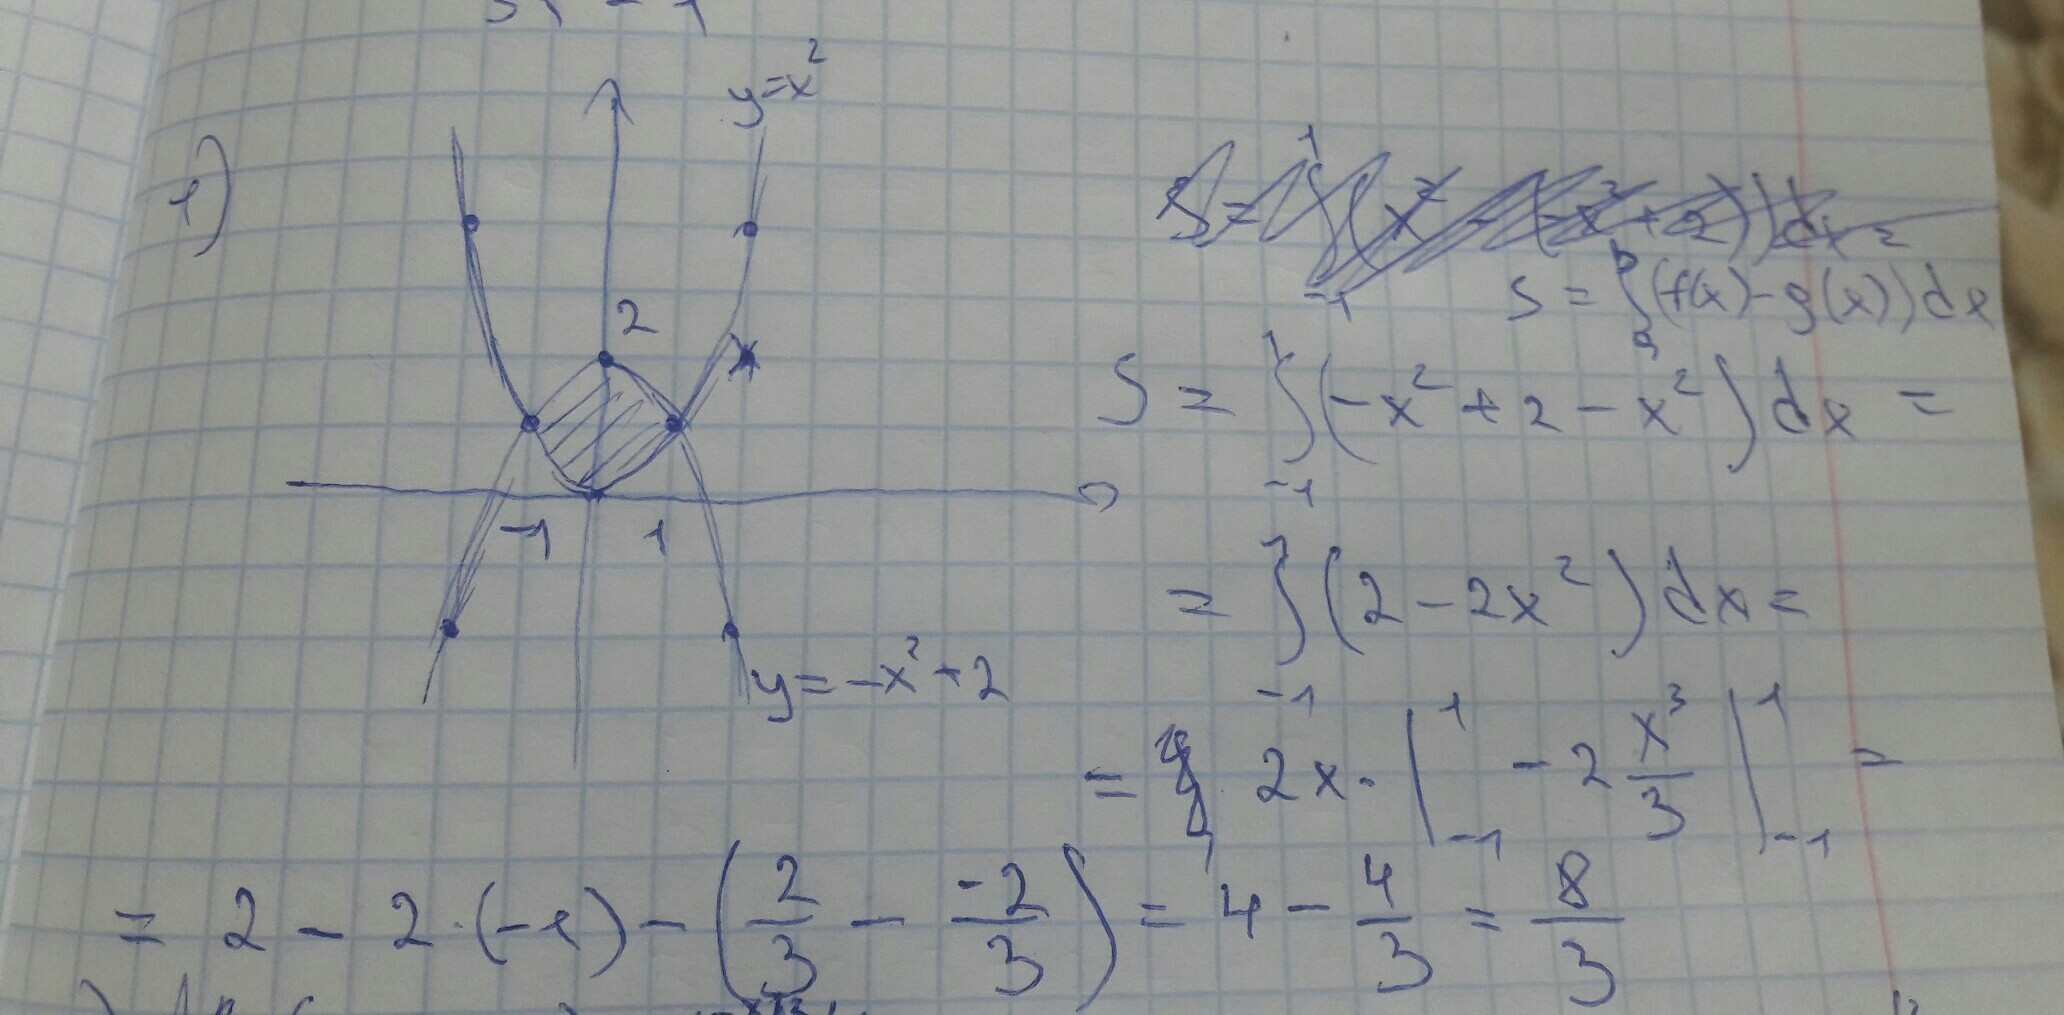 1)
y=x²
2
-1 1
y=-x²+2
S = ∫ₐᵇ (f(x)-g(x))dx
S = ∫₋₁¹ (-x²+2-x²)dx =
= ∫₋₁¹ (2-2x²)dx =
= 2x·|₋₁¹ - 2 x³/3 |₋₁¹ =
= 2 - 2·(-1) - (2/3 - -2/3) = 4 - 4/3 = 8/3